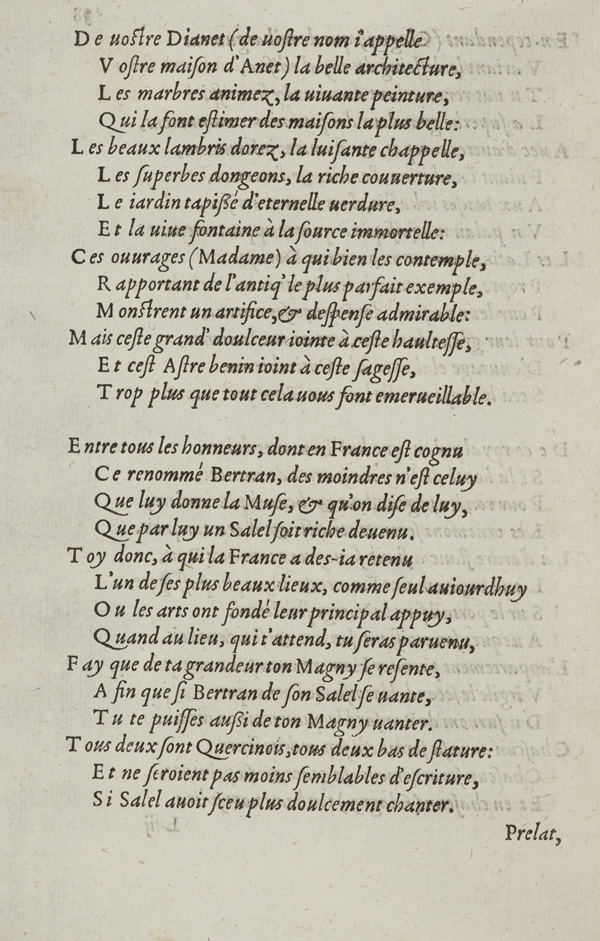 De uostre Dianet (de uostre nom i'appelle
Vostre maiſon d'Anet) la belle architecture,
Les marbres animez, la uiuante peinture,
Qui la font eſtimer des maiſons la plus belle:
Les beaux lambris dorez, la luiſante chappelle,
Les ſuperbes dongeons, la riche couuerture,
Le iardin tapißé d'eternelle uerdure,
Et la uiue fontaine à la ſource immortelle:
Ces ouurages (Madame) à qui bien les contemple,
Rapportant de l'antiq' le plus parfait exemple,
Monſtrent un artifice, & deſpenſe admirable:
Mais ceſte grand' doulceur iointe à ceſte haulteſſe,
Et ceſt Aſtre benin ioint à ceſte ſageſſe,
Trop plus que tout cela uous font emerueillable.
Entre tous les honneurs, dont en France eſt cognu
Ce renommé Bertran, des moindres n'eſt celuy
Que luy donne la Muſe, & qu'on diſe de luy,
Que par luy un Salel ſoit riche deuenu.
Toy donc, à qui la France a des-ia retenu
L'un de ſes plus beaux lieux, comme ſeul auiourdhuy
Ou les arts ont fondé leur principal appuy,
Quand au lieu, qui t'attend, tu ſeras paruenu,
Fay que de ta grandeur ton Magny ſe reſente,
A fin que ſi Bertran de ſon Salel ſe uante,
Tu te puiſſes außi de ton Magny uanter.
Tous deux ſont Quercinois, tous deux bas de ſtature:
Et ne ſeroient pas moins ſemblables d'eſcriture,
Si Salel auoit ſceu plus doulcement chanter.
Prelat,